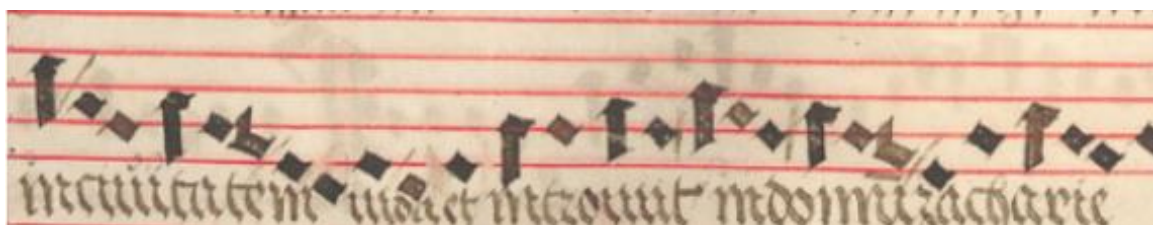 inciuitatem iuda et introiuit indomū zacharie